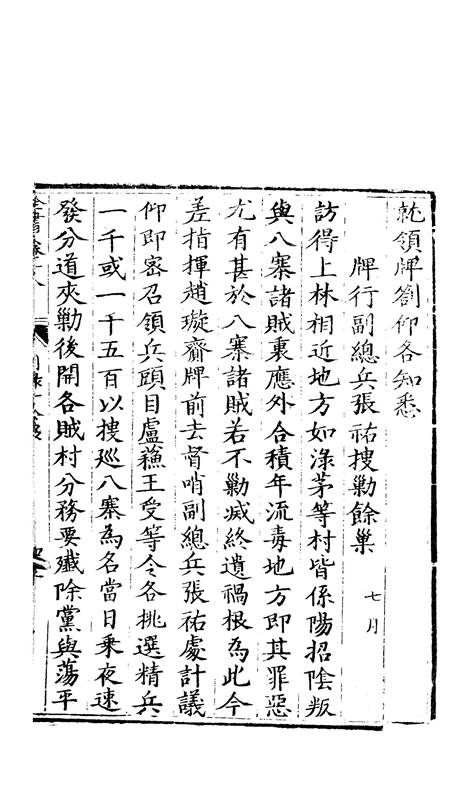 旄領牌劄仰各知悉
牌行副總兵張祐搜勦餘巢 七月
訪得上林相近地方如淥茅等村皆係陽招陰叛
與八寨諸賊裏應外合積年流毒地方即其罪惡
尤有甚於八寨諸賊若不勦滅終遺禍根為此今
差指揮趙璇齎牌前去督哨副總兵張祐處計議
仰即密召領兵頭目盧蘓王受等令各挑選精兵
一千或一千五百以搜廵八寨為名當日乗夜速
發分道夾勦後開各賊村分務要殲除黨與蕩平